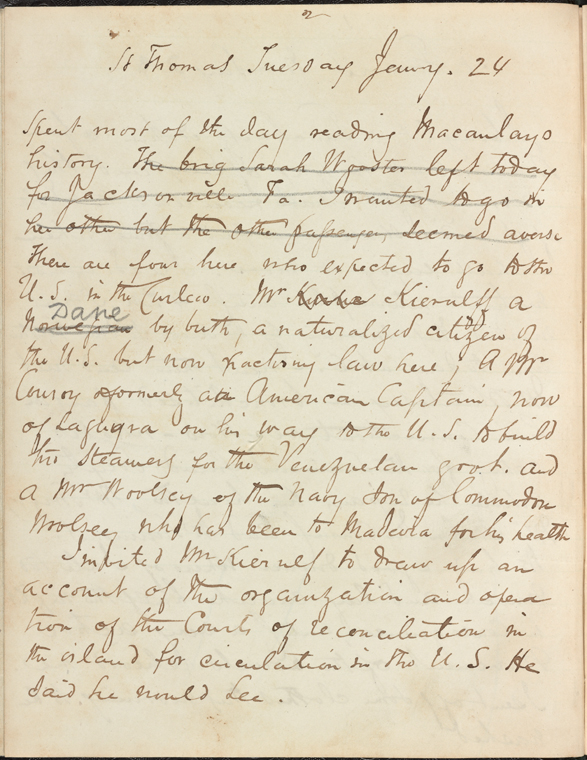 2
St Thomas Tuesday Jany. 24
Spent most of the day reading Macaulays
history. The brig Sarah Wooster left today
for Jacksonville Fa. I wanted to go in
her other but the other passenger seemed averse
There are four here who expected to go to the
U.S. in the Curlew. Mr Kierulff a
Dane
Norwegian by birth, a naturalized citizen of
the U.S. but now practising law here, A Mr
Conroy formerly an American Captain, now
of Laguyra on his way to the U.S. to build
Steamers for the Venezuelan govt. and
a Mr Woolsey of the Navy Son of Commodore
Woolsey who has been to Madeira for his health
I invited Mr Kierulf to draw up an
account of the organization and opera
tion of the Courts of reconciliation in
the island for circulation in the U.S. He
said he would see.